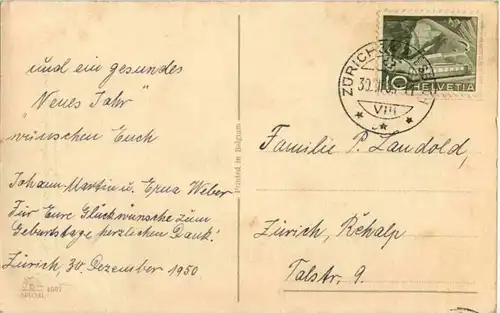 und ein gesundes
"Neues Jahr"
wünschen Euch
Johann-Martin u. Erna Weber
Für Eure Glückwünsche zum
Geburtstage herzlichen Dank!
Zürich, 30. Dezember 1950
SPECIAL 4607
Printed in Belgium
ZÜRICH
VIII
10 HELVETIA
Familie P. Landold,
Zürich, Rehalp
Talstr. 9.